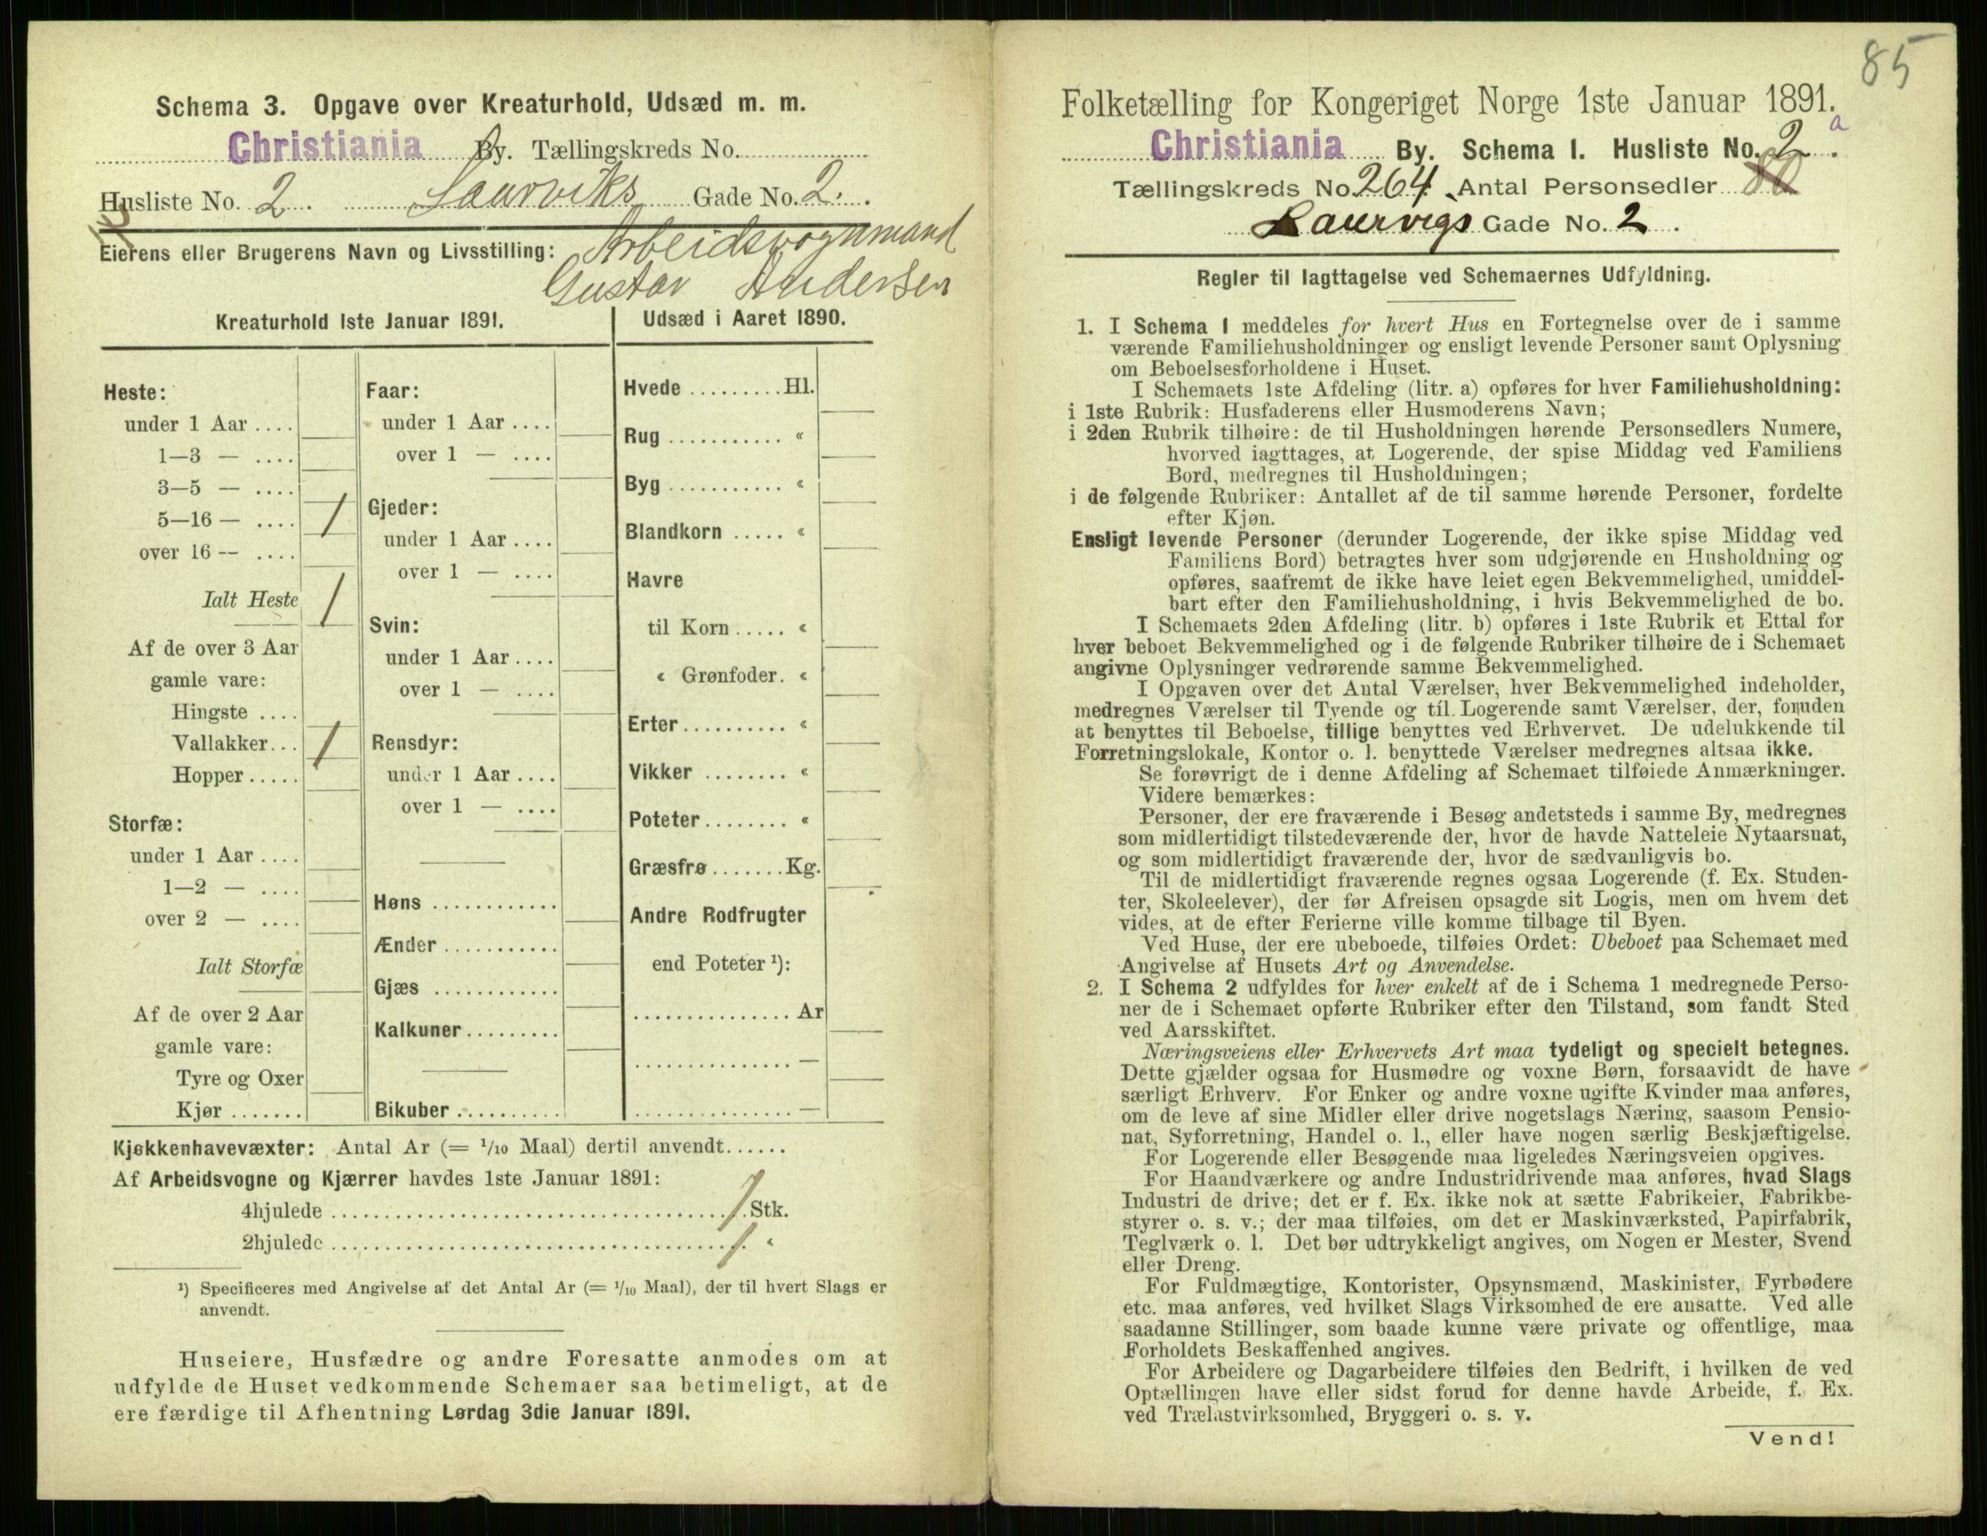 Schema 3. Opgave over Kreaturhold, Udsæd m. m.
Christiania By. Tællingskreds No.
Husliste No. 2. Laurviks Gade No. 2.
Eierens eller Brugerens Navn og Livsstilling: Arbeidsvognmand
Gustav Andersen
Kreaturhold 1ste Januar 1891.
Heste:
under 1 Aar ....
1—3 — ....
3—5 — ....
5—16 — .... 1
over 16 — ....
Ialt Heste 1
Af de over 3 Aar
gamle vare:
Hingste ....
Vallakker... 1
Hopper .....
Storfæ:
under 1 Aar ....
1—2 — ....
over 2 — ....
Ialt Storfæ
Af de over 2 Aar
gamle vare:
Tyre og Oxer
Kjør .......
Faar:
under 1 Aar ....
over 1 — ....
Gjeder:
under 1 Aar ....
over 1 — ....
Svin:
under 1 Aar ....
over 1 — ....
Rensdyr:
under 1 Aar ....
over 1 — ....
Høns ............
Ænder ...........
Gjæs ............
Kalkuner.........
Bikuber ..........
Udsæd i Aaret 1890.
Hvede .........Hl.
Rug ........... «
Byg ........... «
Blandkorn ..... «
Havre
til Korn ..... «
« Grønfoder. «
Erter .......... «
Vikker ........ «
Poteter ........ «
Græsfrø .......Kg.
Andre Rodfrugter
end Poteter ¹):
............... Ar
............... —
............... —
Kjøkkenhavevæxter: Antal Ar (= 1/10 Maal) dertil anvendt......
Af Arbeidsvogne og Kjærrer havdes 1ste Januar 1891:
4hjulede ..................................... 1 Stk.
2hjulede ..................................... 1 «
¹) Specificeres med Angivelse af det Antal Ar (= 1/10 Maal), der til hvert Slags er
anvendt.
Huseiere, Husfædre og andre Foresatte anmodes om at
udfylde de Huset vedkommende Schemaer saa betimeligt, at de
ere færdige til Afhentning Lørdag 3die Januar 1891.
85
Folketælling for Kongeriget Norge 1ste Januar 1891.
Christiania By. Schema I. Husliste No. 2 a.
Tællingskreds No. 264. Antal Personsedler 80
Laurvigs Gade No. 2.
Regler til Iagttagelse ved Schemaernes Udfyldning.
1. I Schema 1 meddeles for hvert Hus en Fortegnelse over de i samme
værende Familiehusholdninger og ensligt levende Personer samt Oplysning
om Beboelsesforholdene i Huset.
I Schemaets 1ste Afdeling (litr. a) opføres for hver Familiehusholdning:
i 1ste Rubrik: Husfaderens eller Husmoderens Navn;
i 2den Rubrik tilhøire: de til Husholdningen hørende Personsedlers Numere,
hvorved iagttages, at Logerende, der spise Middag ved Familiens
Bord, medregnes til Husholdningen;
i de følgende Rubriker: Antallet af de til samme hørende Personer, fordelte
efter Kjøn.
Ensligt levende Personer (derunder Logerende, der ikke spise Middag ved
Familiens Bord) betragtes hver som udgjørende en Husholdning og
opføres, saafremt de ikke have leiet egen Bekvemmelighed, umiddel-
bart efter den Familiehusholdning, i hvis Bekvemmelighed de bo.
I Schemaets 2den Afdeling (litr. b) opføres i 1ste Rubrik et Ettal for
hver beboet Bekvemmelighed og i de følgende Rubriker tilhøire de i Schemaet
angivne Oplysninger vedrørende samme Bekvemmelighed.
I Opgaven over det Antal Værelser, hver Bekvemmelighed indeholder,
medregnes Værelser til Tyende og til Logerende samt Værelser, der, foruden
at benyttes til Beboelse, tillige benyttes ved Erhvervet. De udelukkende til
Forretningslokale, Kontor o. l. benyttede Værelser medregnes altsaa ikke.
Se forøvrigt de i denne Afdeling af Schemaet tilføiede Anmærkninger.
Videre bemærkes:
Personer, der ere fraværende i Besøg andetsteds i samme By, medregnes
som midlertidigt tilstedeværende der, hvor de havde Natteleie Nytaarsnat,
og som midlertidigt fraværende der, hvor de sædvanligvis bo.
Til de midlertidigt fraværende regnes ogsaa Logerende (f. Ex. Studen-
ter, Skoleelever), der før Afreisen opsagde sit Logis, men om hvem det
vides, at de efter Ferierne ville komme tilbage til Byen.
Ved Huse, der ere ubeboede, tilføies Ordet: Ubeboet paa Schemaet med
Angivelse af Husets Art og Anvendelse.
2. I Schema 2 udfyldes for hver enkelt af de i Schema 1 medregnede Perso-
ner de i Schemaet opførte Rubriker efter den Tilstand, som fandt Sted
ved Aarsskiftet.
Næringsveiens eller Erhvervets Art maa tydeligt og specielt betegnes.
Dette gjælder ogsaa for Husmødre og voxne Børn, forsaavidt de have
særligt Erhverv. For Enker og andre voxne ugifte Kvinder maa anføres,
om de leve af sine Midler eller drive nogetslags Næring, saasom Pensio-
nat, Syforretning, Handel o. l., eller have nogen særlig Beskjæftigelse.
For Logerende eller Besøgende maa ligeledes Næringsveien opgives.
For Haandværkere og andre Industridrivende maa anføres, hvad Slags
Industri de drive; det er f. Ex. ikke nok at sætte Fabrikeier, Fabrikbe-
styrer o. s. v.; der maa tilføies, om det er Maskinværksted, Papirfabrik,
Teglværk o. l. Det bør udtrykkeligt angives, om Nogen er Mester, Svend
eller Dreng.
For Fuldmægtige, Kontorister, Opsynsmænd, Maskinister, Fyrbødere
etc. maa anføres, ved hvilket Slags Virksomhed de ere ansatte. Ved alle
saadanne Stillinger, som baade kunne være private og offentlige, maa
Forholdets Beskaffenhed angives.
For Arbeidere og Dagarbeidere tilføies den Bedrift, i hvilken de ved
Optællingen have eller sidst forud for denne havde Arbeide, f. Ex.
ved Trælastvirksomhed, Bryggeri o. s. v.
Vend!